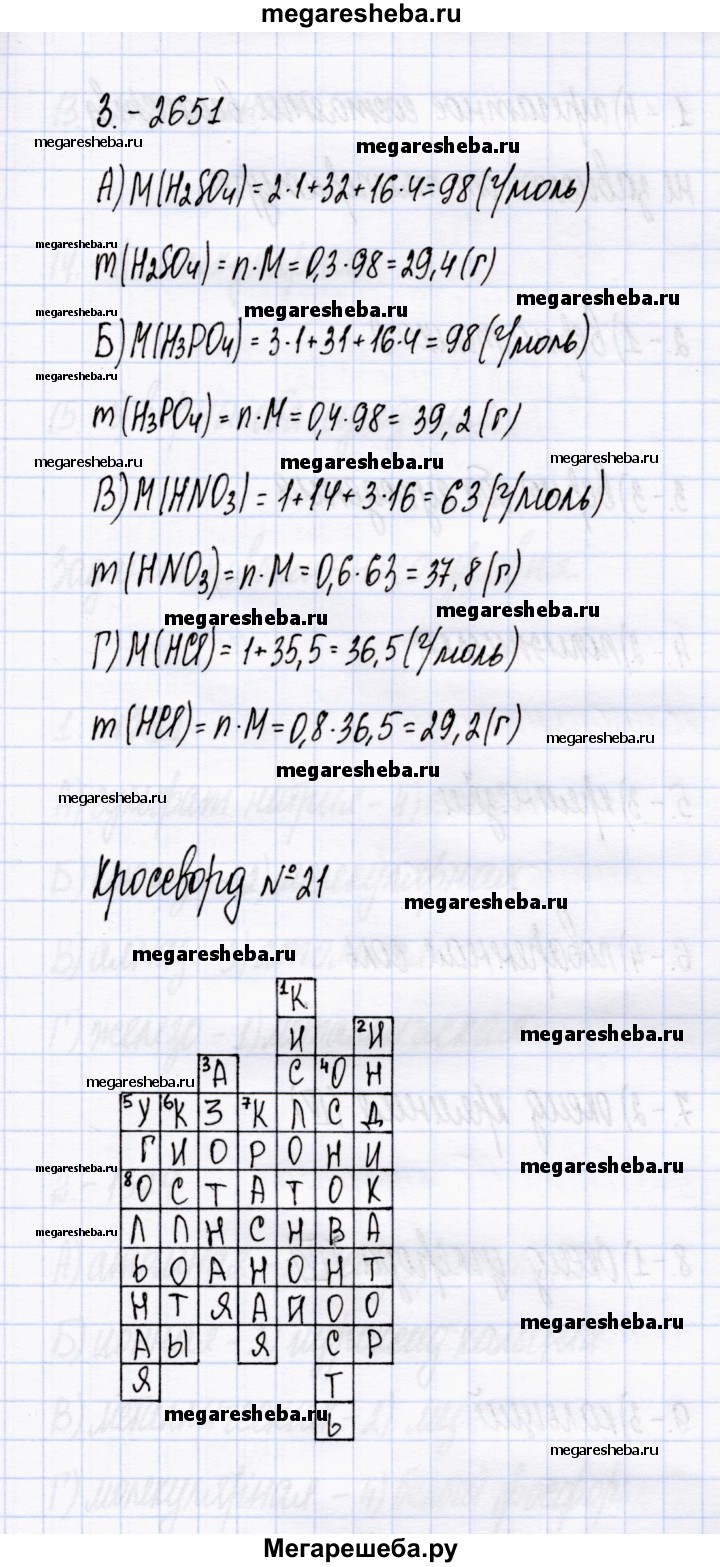 megaresheba.ru
3.-2651
megaresheba.ru
megaresheba.ru
А) M(H2SO4) = 2·1+32+16·4=98(г/моль)
megaresheba.ru
m(H2SO4) = n·M = 0,3·98=29,4(г)
megaresheba.ru
megaresheba.ru
megaresheba.ru
Б) M(H3PO4) = 3·1+31+16·4=98(г/моль)
megaresheba.ru
m(H3PO4) = n·M = 0,4·98= 39,2(г)
megaresheba.ru
megaresheba.ru
megaresheba.ru
В) M(HNO3) = 1+14+3·16=63(г/моль)
m(HNO3)=n·M=0,6·63=37,8(г)
megaresheba.ru
megaresheba.ru
Г) M(HCl)=1+35,5=36,5(г/моль)
m(HCl)=n·M=0,8·36,5=29,2(г)
megaresheba.ru
megaresheba.ru
megaresheba.ru
Кроссворд №21
megaresheba.ru
megaresheba.ru
1К
И 2И
megaresheba.ru
3А С 4О Н
megaresheba.ru
5У 6К З 7К Л С Д
megaresheba.ru
Г И О Р О Н И
megaresheba.ru
megaresheba.ru
8О С Т А Т О К
Л Л Н С Н В А
megaresheba.ru
megaresheba.ru
Ь О А Н О Н Т
Н Т Я А Й О О
megaresheba.ru
А Ы Я С Р
Я Т
megaresheba.ru
Ь
megaresheba.ru
Мегарешеба.ру